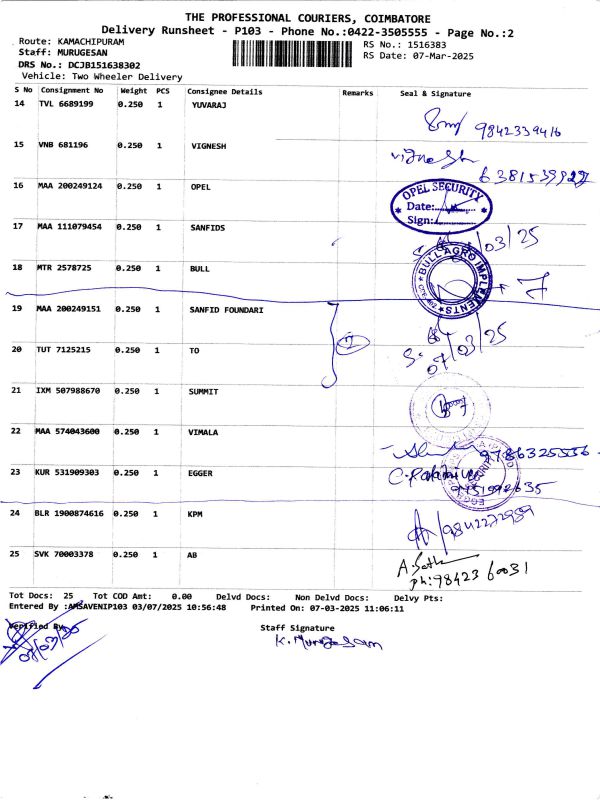 THE PROFESSIONAL COURIERS, COIMBATORE
Delivery Runsheet - P103 - Phone No.:0422-3505555 - Page No.:2
Route: KAMACHIPURAM RS No.: 1516383
Staff: MURUGESAN RS Date: 07-Mar-2025
DRS No.: DCJB151638302
Vehicle: Two Wheeler Delivery
S No Consignment No Weight PCS Consignee Details Remarks Seal & Signature
14 TVL 6689199 0.250 1 YUVARAJ
9842339416
15 VNB 681196 0.250 1 VIGNESH
Vignesh
16 MAA 200249124 0.250 1 OPEL
OPEL SECURITY
Date:
Sign:
17 MAA 111079454 0.250 1 SANFIDS
/03/25
18 MTR 2578725 0.250 1 BULL
BULL AGRO IMPLEMENTS
19 MAA 200249151 0.250 1 SANFID FOUNDARI
2
20 TUT 7125215 0.250 1 TO
07/03/25
21 IXM 507988670 0.250 1 SUMMIT
22 MAA 574043600 0.250 1 VIMALA
9786325536
23 KUR 531909303 0.250 1 EGGER
24 BLR 1900874616 0.250 1 KPM
9842272989
25 SVK 70003378 0.250 1 AB
Ph: 9842360031
Tot Docs: 25 Tot COD Amt: 0.00 Delvd Docs: Non Delvd Docs: Delvy Pts:
Entered By :AMSAVENIP103 03/07/2025 10:56:48 Printed On: 07-03-2025 11:06:11
Verified By Staff Signature
07/03/25 K. Murugesan